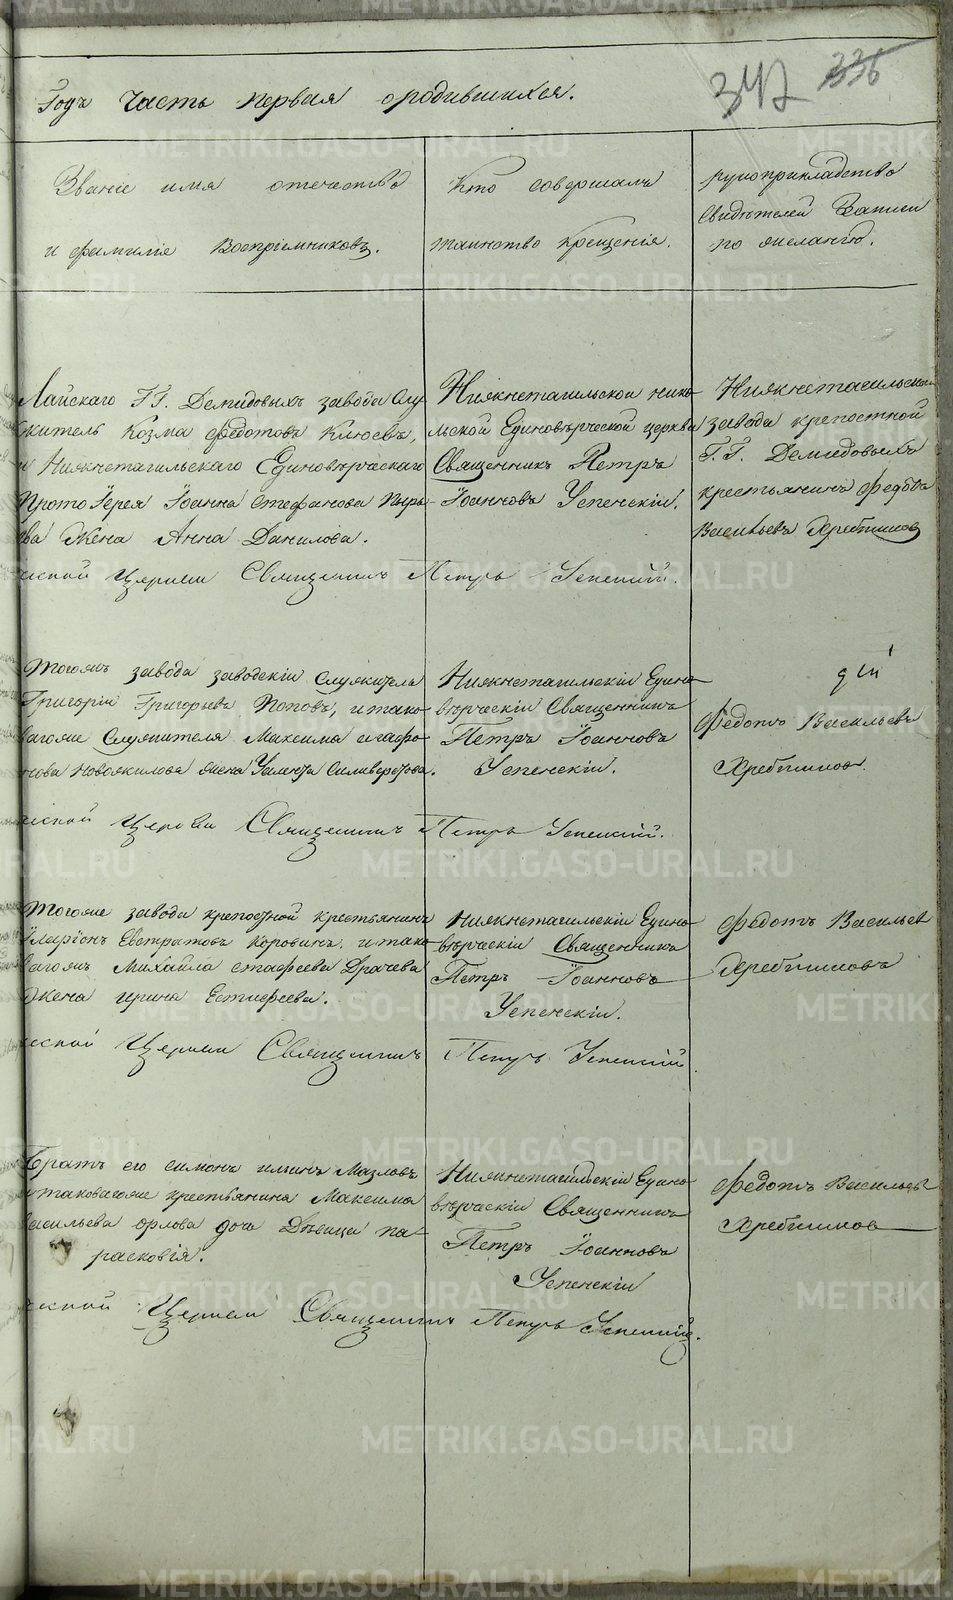 Годъ часть первая ородившихся.
342 336
Званіе имя отечество
и фамиліе Воспріемниковъ.
Кто совершалъ
таинство крещенія.
рукоприкладство
свидѣтелей Записи
по желанію.
Лайскаго Г.Г. Демидовыхъ завода Слу-
житель Козма Федотовъ Клюевъ,
и Нижнетагильскаго Единовѣрческаго
ПротоІерея Іоанна Стефанова Пыр-
ва Жена Анна Данилова.
Нижнетагильской нико-
льской Единовѣрческой церкви
Священникъ Петръ
Іоанновъ Успенскіи.
Нижнетагильскаго
завода крепостной
Г.Г. Демидовыхъ
крестьянинъ Федотъ
Васильевъ Хребтиковъ
ческой Церкви Священникъ Петръ Успенскій.
Тогожъ завода заводскіи Служитель
Григоріи Григорьевъ Поповъ, итако-
вагоже Служителя Максима Агафо-
нова Новожилова жена Силиверстова.
Нижнетагильскіи Едино-
вѣрческіи Священникъ
Петръ Іоанновъ
Успенскіи.
Федотъ Васильевъ
Хребтиковъ.
ческой Церкви Священникъ Петръ Успенскій.
Тогоже завода крепостной крестьянинъ
Иларіонъ Евстратовъ Коровинъ. итако-
вагожъ Михаила Стафеева Драчева
Жена ирина Естифеева.
Нижнетагильскіи Едино-
вѣрческіи Священникъ
Петръ Іоанновъ
Успенскіи.
Федотъ Васильевъ
Хребтиковъ
ческой Церкви Священникъ Петръ Успенскій
Братъ его симонъ Мазловъ
итаковагоже крестьянина Максима
Васильева Орлова дочь Дѣвица па-
расковія.
Нижнетагильскіи Едино-
вѣрческіи Священникъ
Петръ Іоанновъ
Успенскіи
Федотъ Васильевъ
Хребтиковъ
ческой Церкви Священникъ Петръ Успенскій.
METRIKI.GASO-URAL.RU